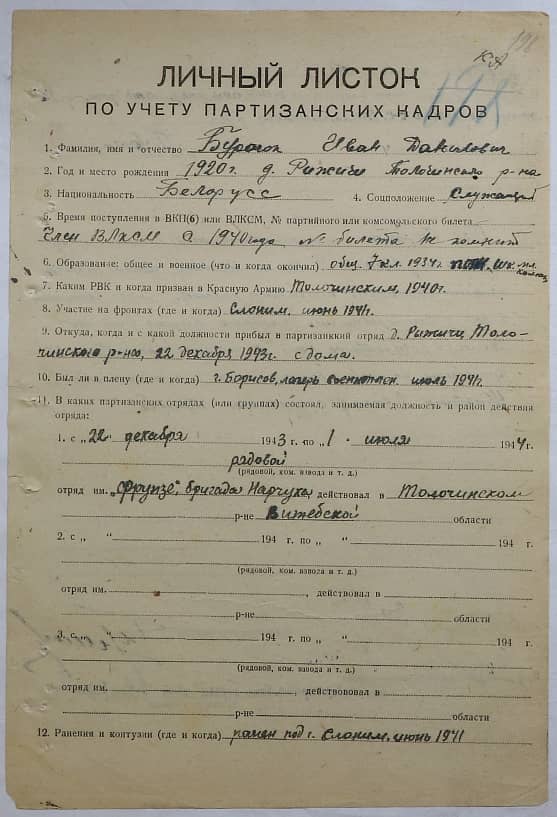 КА 198
191
ЛИЧНЫЙ ЛИСТОК
ПО УЧЕТУ ПАРТИЗАНСКИХ КАДРОВ
1. Фамилия, имя и отчество Иван Данилович
2. Год и место рождения 1920г. д. Рыжичи Толочинского р-на
3. Национальность Белорусс 4. Соцположение Служащий
5. Время поступления в ВКП(б) или ВЛКСМ, № партийного или комсомольского билета
Член ВЛКСМ с 1940 года № билета не помнит
6. Образование: общее и военное (что и когда окончил) общ. 7 кл. 1934г. шк. мл. команд.
7. Каким РВК и когда призван в Красную Армию Толочинским, 1940г.
8. Участие на фронтах (где и когда) Слоним, июнь 1941г.
9. Откуда, когда и с какой должности прибыл в партизанский отряд д. Рыжичи Толо-
чинского р-на, 22 декабря 1943г. с дома.
10. Был ли в плену (где и когда) г. Борисов, лагерь военноплен. июль 1941г.
11. В каких партизанских отрядах (или группах) состоял, занимаемая должность и район действия
отряда:
1. с „22" декабря 1943 г. по „1" июля 1944 г.
рядовой
(рядовой, ком. взвода и т. д.)
отряд им. „Фрунзе", бригада Нарчука, действовал в Толочинском
р-не Витебской области
2. с „ " 194 г. по „ " 194 г.
(рядовой, ком. взвода и т. д.)
отряд им. , действовал в
р-не области
3. с „ " 194 г. по „ " 194 г.
(рядовой, ком. взвода и т. д.)
отряд им. , действовал в
р-не области
12. Ранения и контузии (где и когда) ранен под г. Слоним, июнь 1941